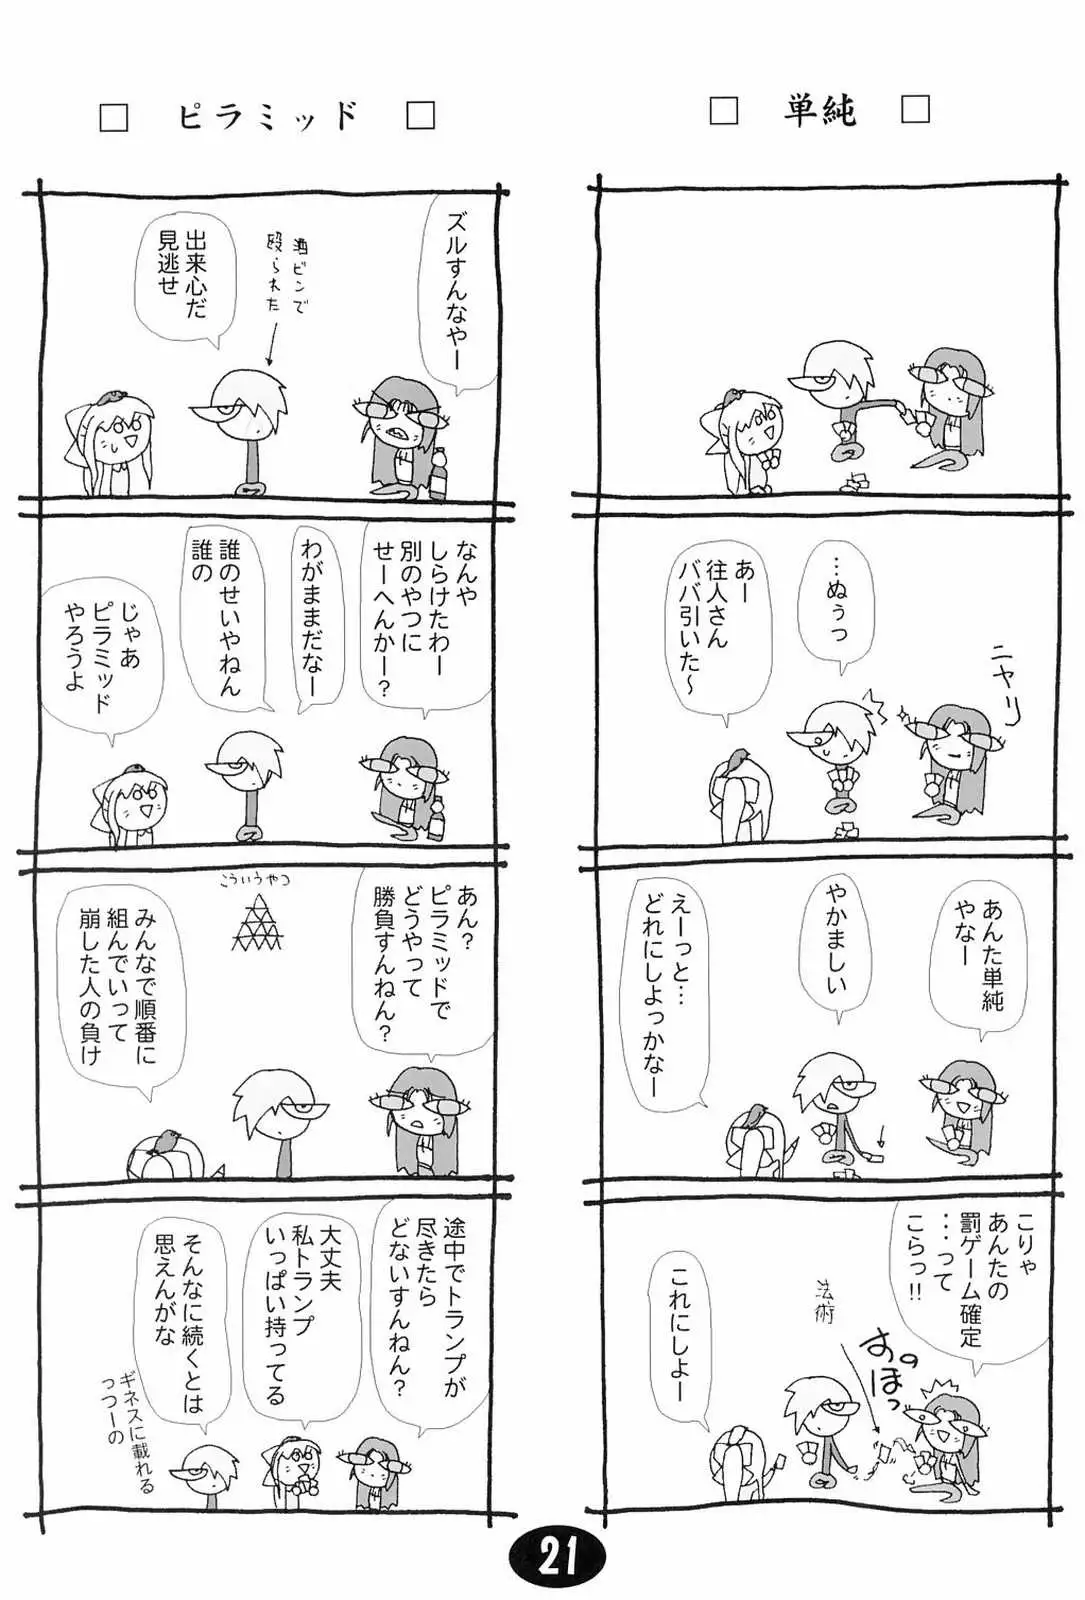 □ 単純 □
…ぬぅっ
あー
往人さん
ババ引いた〜
ニヤリ
あんた単純
やなー
やかましい
えーっと…
どれにしよっかなー
こりゃ
あんたの
罰ゲーム確定
・・・って
こらっ!!
法術
すのほっ
これにしよー
□ ピラミッド □
ズルすんなやー
酒ビンで
殴られた
出来心だ
見逃せ
なんや
しらけたわー
別のやつに
せーへんかー?
わがままだなー
誰のせいやねん
誰の
じゃあ
ピラミッド
やろうよ
あん?
ピラミッドで
どうやって
勝負すんねん?
こういうやつ
みんなで順番に
組んでいって
崩した人の負け
途中でトランプが
尽きたら
どないすんねん?
大丈夫
私トランプ
いっぱい持ってる
そんなに続くとは
思えんがな
ギネスに載れる
っつーの
21